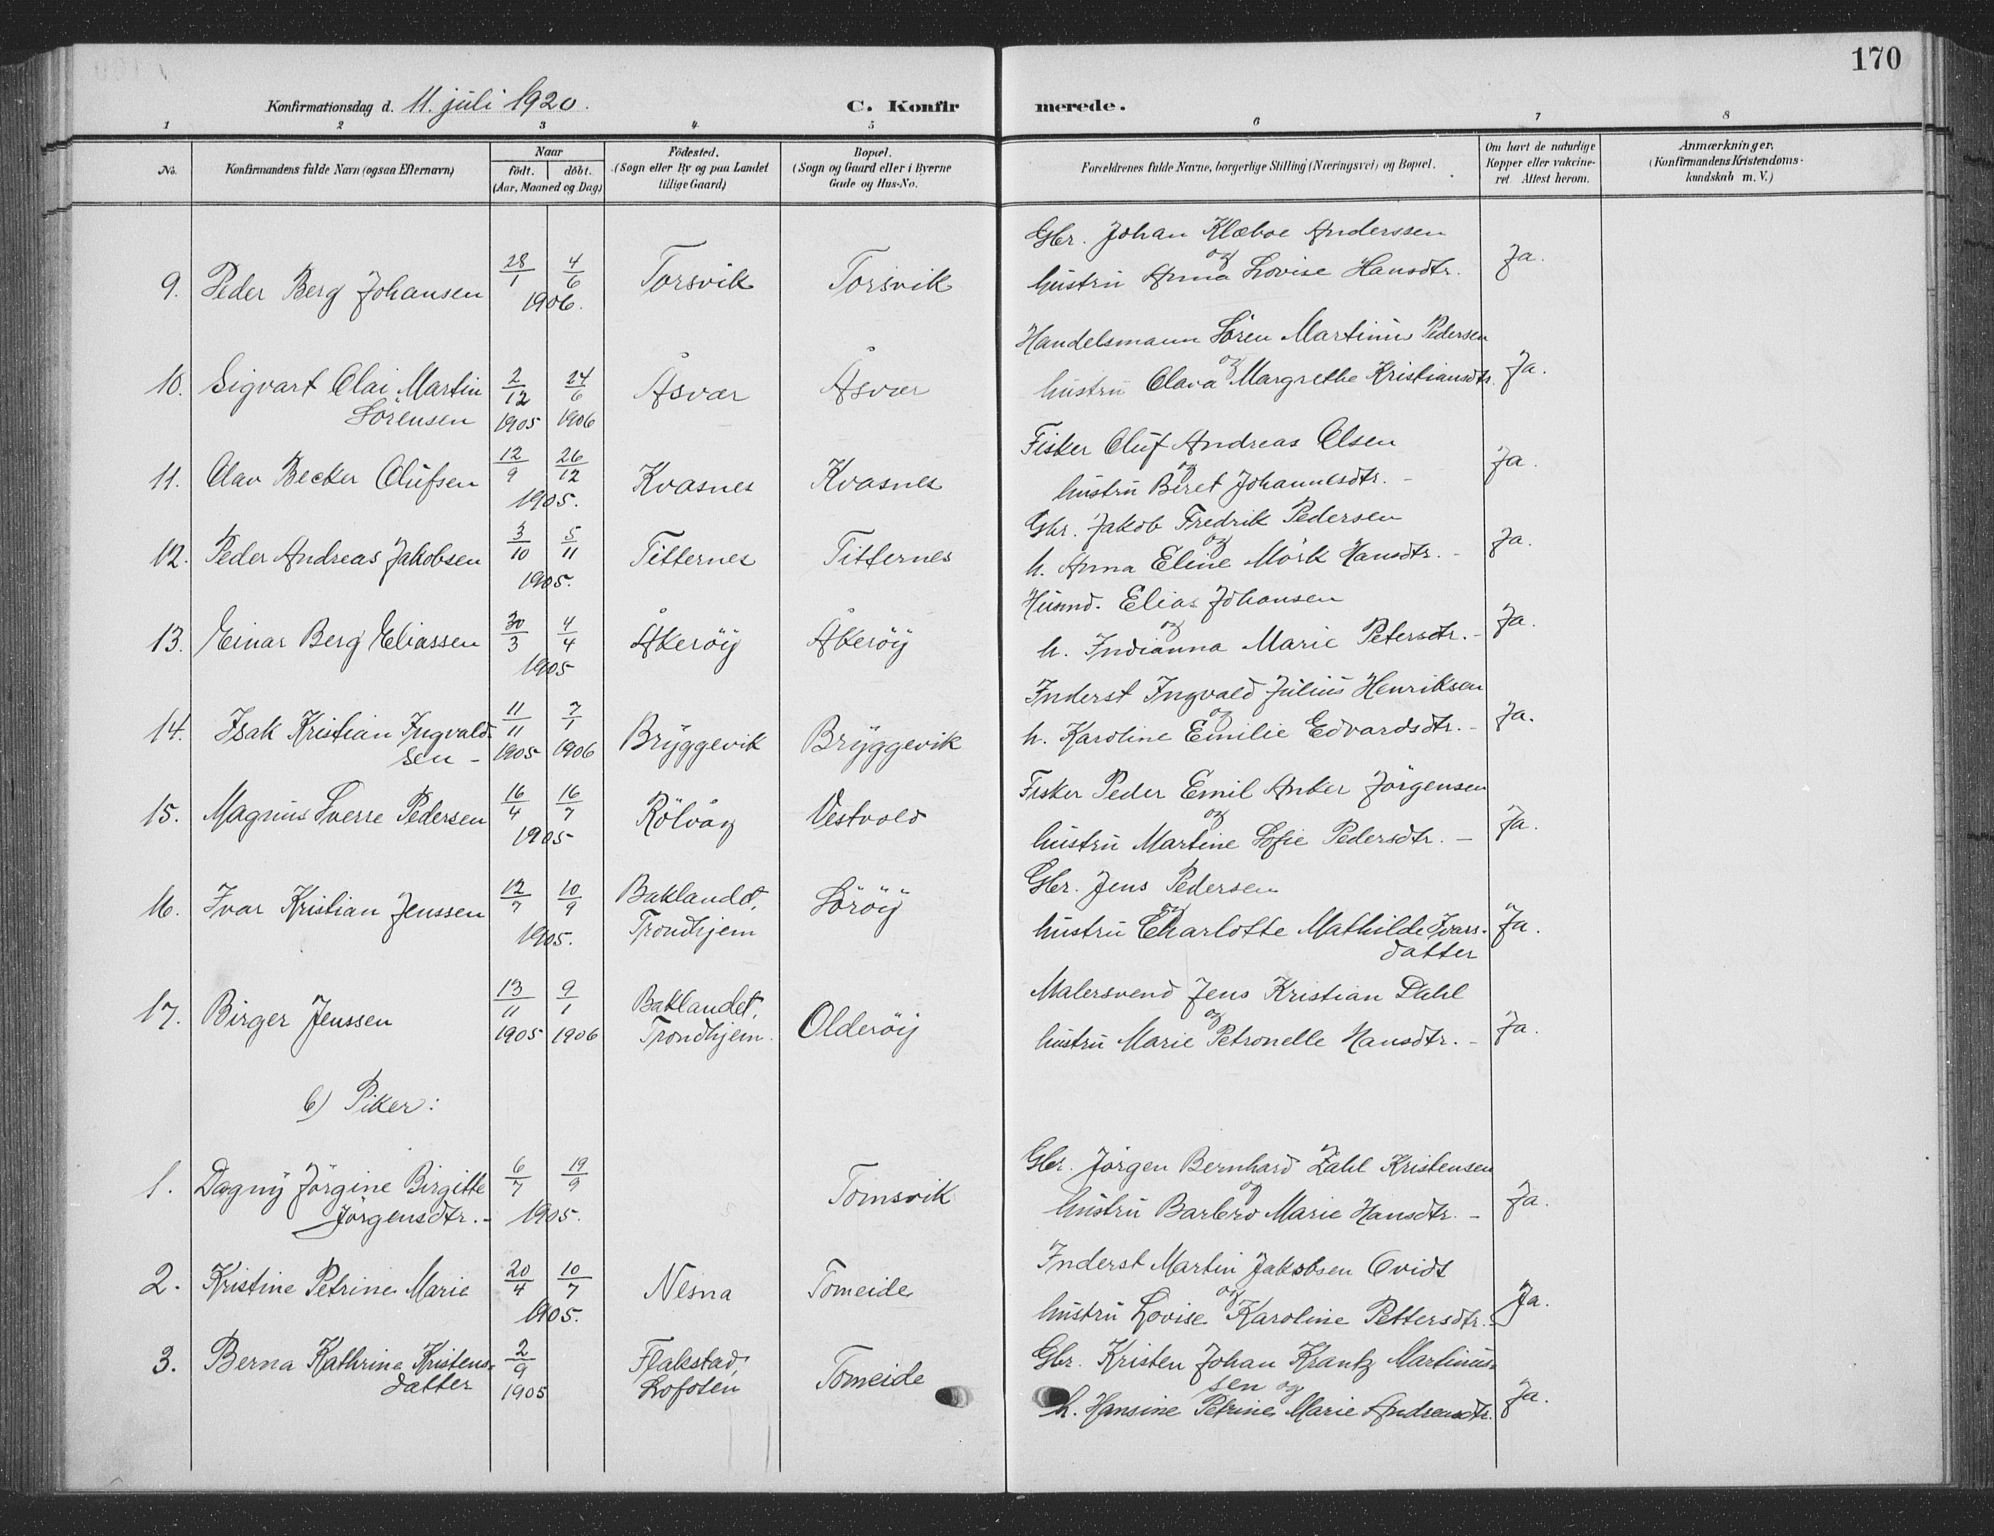 170
Konfirmationsdag d. 11. juli 1920.
C. Konfirmerede.
1 2 3 4 5 6 7 8
No. Konfirmandens fulde Navn (ogsaa Efternavn) Naar født. døbt. (Aar, Maaned og Dag) Fødested. (Sogn eller By og paa Landet tillige Gaard) Bopæl. (Sogn og Gaard eller i Byerne Gade og Hus-No. Forældrenes fulde Navne, borgerlige Stilling (Næringsvei) og Bopæl. Om havt de naturlige Kopper eller vakcineret. Attest herom. Anmærkninger. (Konfirmandens Kristendomskundskab m. V.)
9. Peder Berg Johansen 28/1 4/6 1906. Torsvik Torsvik Gbr. Johan Klæboe Anderssen og hustru Anna Lovise Hansdtr. Ja.
10. Sigvart Olai Martin Sörensen 2/12 1905 24/6 1906 Åsvær Åsvær Handelsmann Sören Martinus Pedersen og hustru Olava Margrethe Kristiansdtr. Ja.
11. Olav Becker Olufsen 12/9 26/12 1905. Kvasnes Kvasnes Fisker Oluf Andreas Olsen og hustru Beret Johannesdtr. - Ja.
12. Peder Andreas Jakobsen 3/10 5/11 1905. Titternes Titternes Gbr. Jakob Fredrik Pedersen og h. Anna Eline Mörk Hansdtr. - Ja.
13. Einar Berg Eliassen 30/3 4/4 1905 Åkeröy Åkeröy Husmd. Elias Johansen og h. Indianna Marie Petersdtr. - Ja.
14. Isak Kristian Ingvaldsen - 11/11 1905 7/1 1906 Bryggevik Bryggevik Inderst Ingvald Julius Henriksen og h. Karoline Emilie Edvardsdtr. - Ja.
15. Magnus Sverre Pedersen 16/4 16/7 1905 Rölvåg Vestvold Fisker Peder Emil Anker Jörgensen og hustru Martine Sofie Pedersdtr. — Ja.
16. Ivar Kristian Jenssen 12/7 10/9 1905. Baklandet, Trondhjem Söröy Gbr. Jens Pedersen og hustru Charlotte Mathilde Ivarsdatter Ja.
17. Birger Jenssen 13/11 1905 9/1 1906 Baklandet, Trondhjem. Olderöy Malersvend Jens Kristian Dahl og hustru Marie Petronelle Hansdtr. - Ja.
b) Piker:
1. Dagny Jörgine Birgitte Jörgensdtr. - 6/7 19/9 1905. Tomsvik Gbr. Jörgen Bernhard Zahl Kristensen og hustru Barbro Marie Hansdtr. - Ja.
2. Kristine Petrine Marie 20/4 10/7 1905. Nesna Tomeide Inderst Martin Jakobsen Qvidt og hustru Lovise Karoline Pettersdtr. Ja.
3. Berna Kathrine Kristensdatter 2/9 1905 Flakstad, Lofoten Tomeide Gbr. Kristen Johan Krantz Martinussen og h. Hansine Petrine Marie Andreasdtr. Ja.